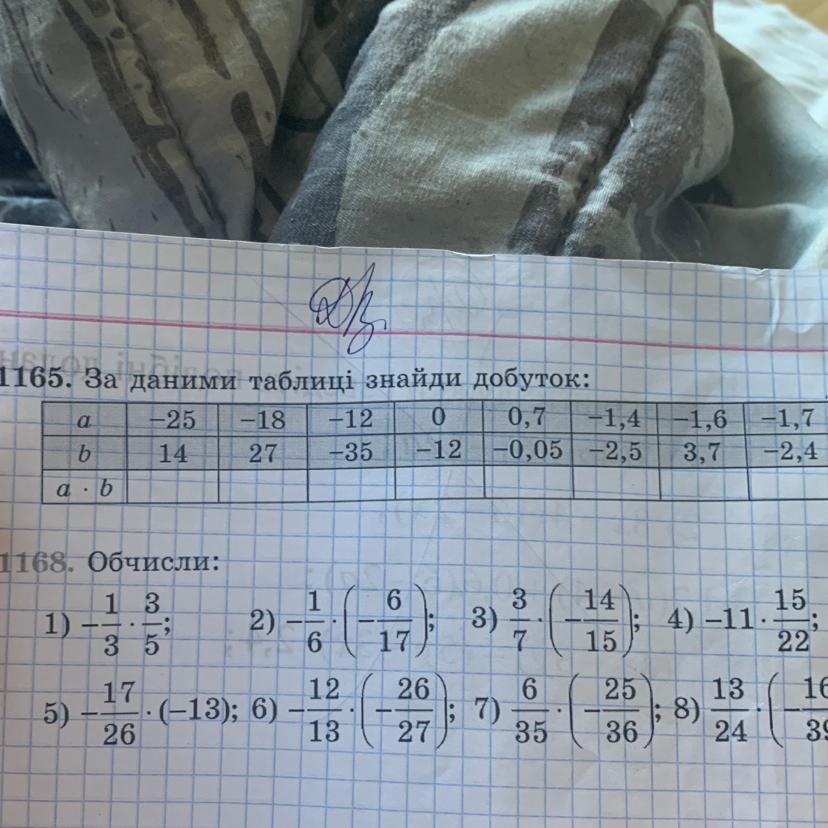 Др
1165. За даними таблиці знайди добуток:
a −25 −18 −12 0 0,7 −1,4 −1,6 −1,7
b 14 27 −35 −12 −0,05 −2,5 3,7 −2,4
a · b
1168. Обчисли:
1) −1/3 · 3/5; 2) −1/6 · (−6/17); 3) 3/7 · (−14/15); 4) −11 · 15/22;
5) −17/26 · (−13); 6) −12/13 · (−26/27); 7) 6/35 · (−25/36); 8) 13/24 · (−16/39